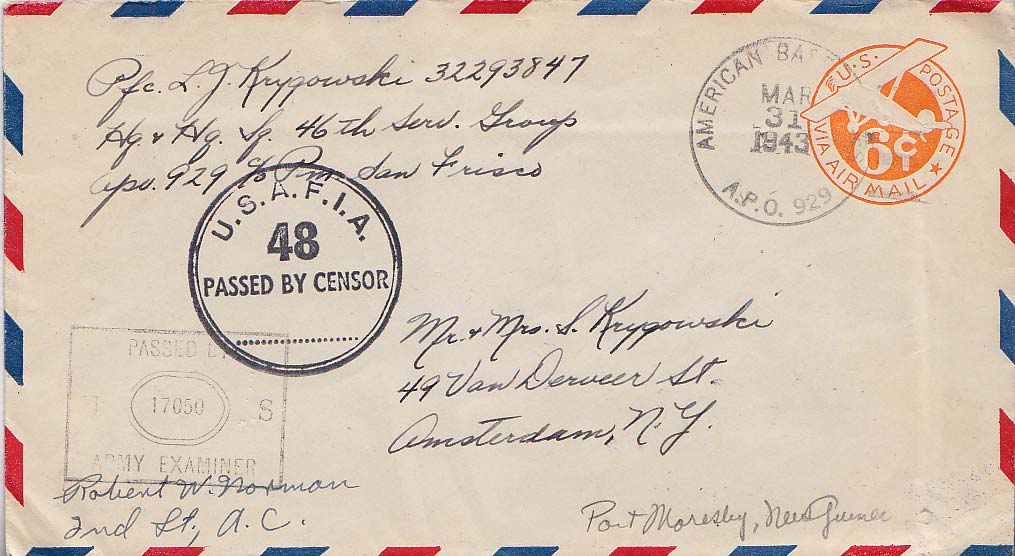 Pfc. L.J. Krygowski 32293847
Hq & Hq. Sq. 46th Serv. Group
apo. 929 c/o Pm. San Frisco
AMERICAN BAS
MAR
31
1943
A.P.O. 929
U.S. POSTAGE
6¢
VIA AIR MAIL
U.S.A.F.I.A.
48
PASSED BY CENSOR
Mr. & Mrs. S. Krygowski
49 Van Derveer St.
Amsterdam, N.Y.
PASSED BY
17050 S
ARMY EXAMINER
Robert W. Norman
2nd Lt., A.C.
Port Moresby, New Guinea